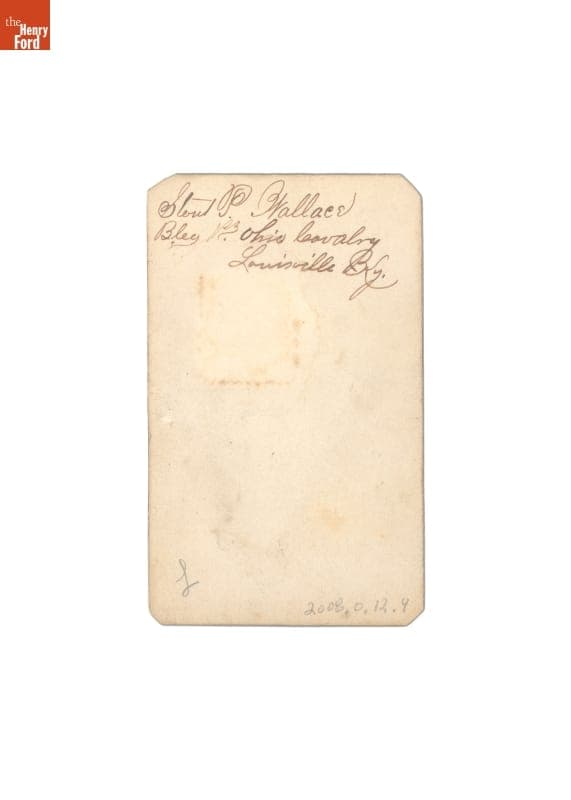 the
Henry
Ford
P. Wallace
Ohio Cavalry
Louisville Ky.
2008.0.12.4